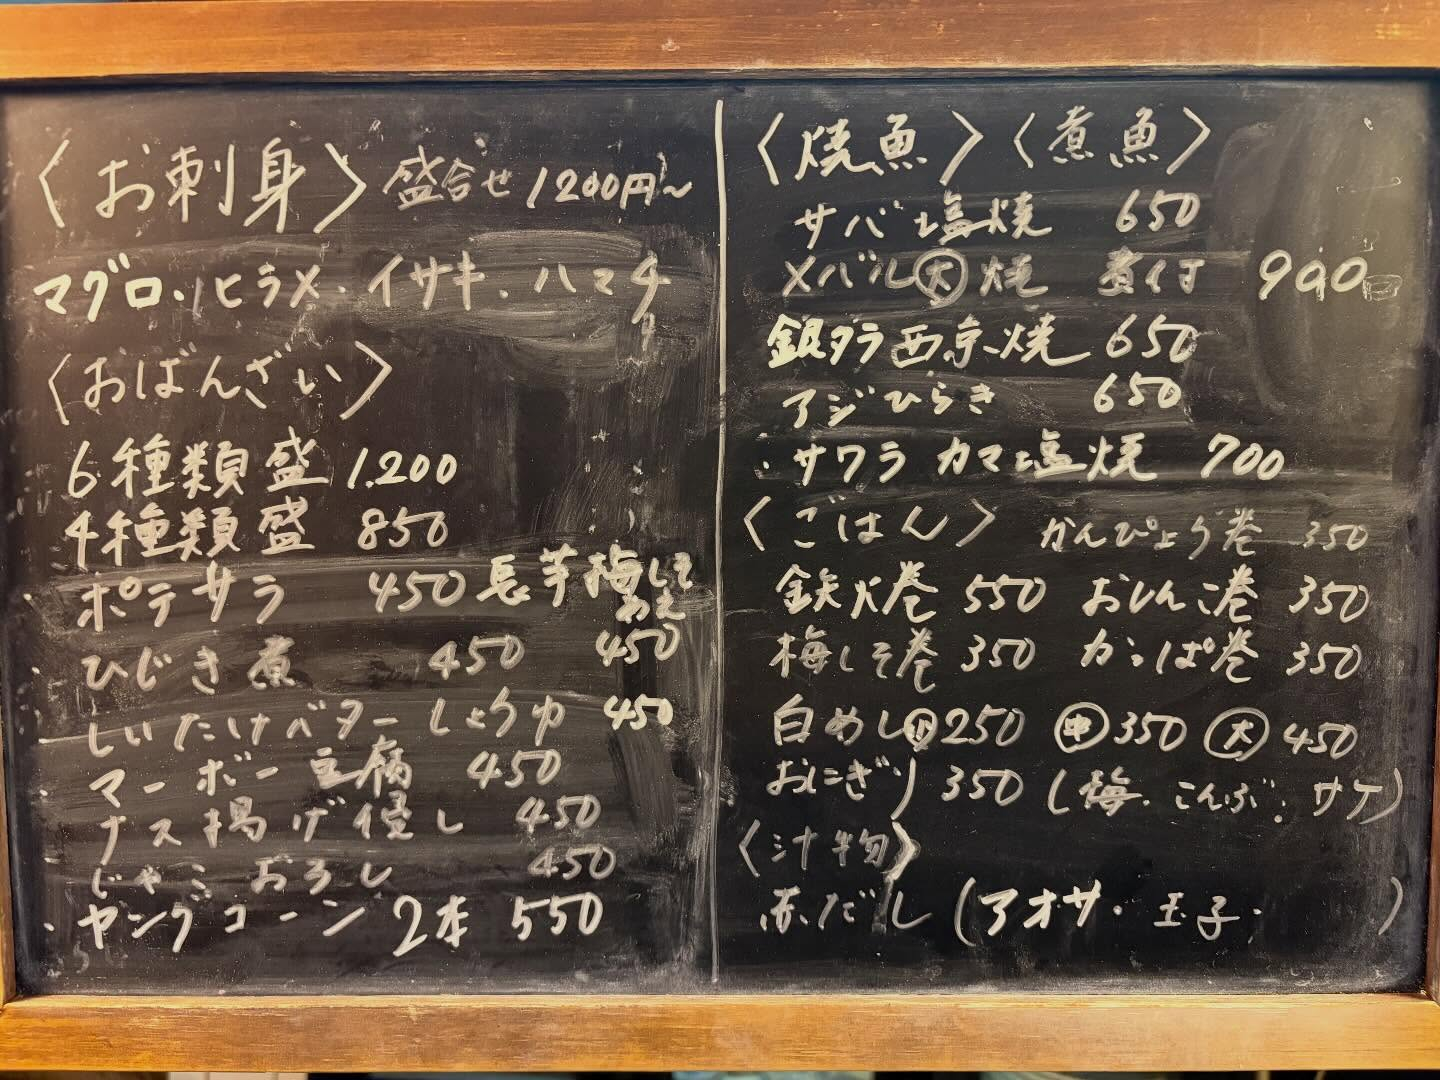 〈お刺身〉盛合せ 1200円~
マグロ・ヒラメ・イサキ・ハマチ
〈おばんざい〉
6種類盛 1.200
4種類盛 850
ポテサラ 450
長芋梅しそ
あえ
450
ひじき煮 450
しいたけバターしょうゆ 450
マーボー豆腐 450
ナス揚げ浸し 450
じゃこおろし 450
・ヤングコーン 2本 550
〈焼魚〉〈煮魚〉
サバ塩焼 650
メバル大焼 煮付 900
銀タラ西京焼 650
アジひらき 650
・サワラカマ塩焼 700
〈ごはん〉 かんぴょう巻 350
鉄火巻 550 おしんこ巻 350
梅しそ巻 350 かっぱ巻 350
白めし小250 中350 大450
おにぎり 350 (梅・こんぶ・サケ)
〈汁物〉
赤だし (アオサ・玉子・ )